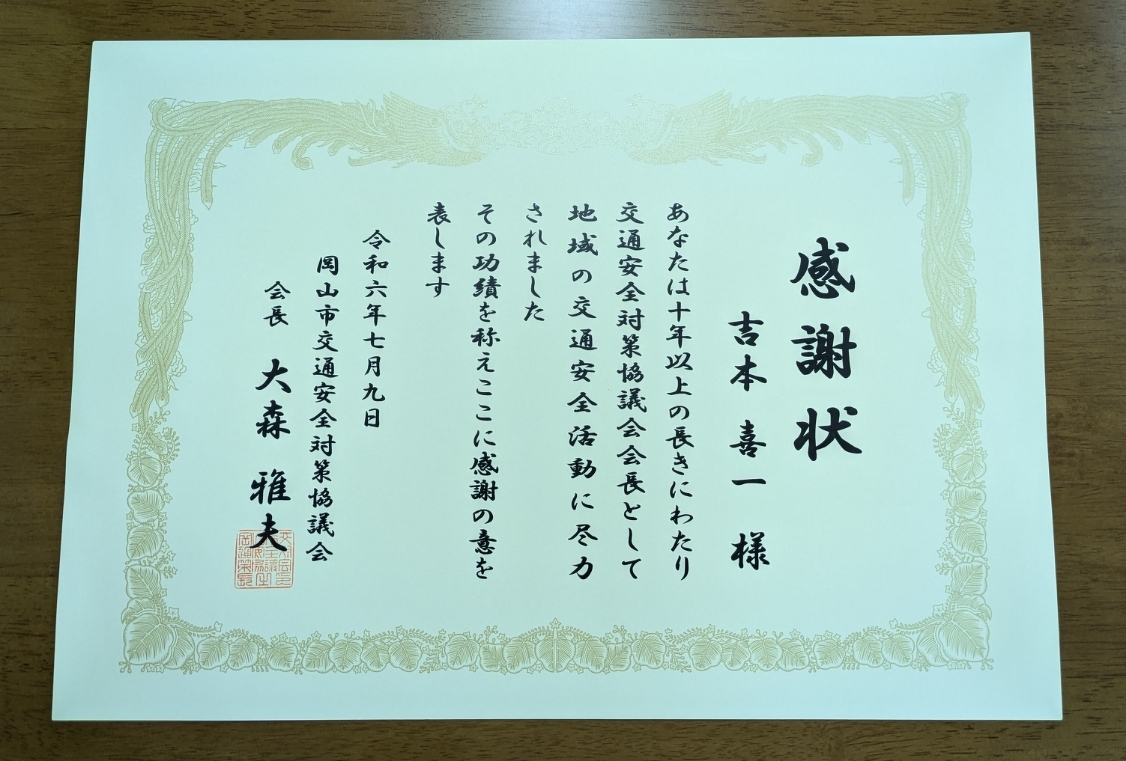 感謝状
吉本 喜一 様
あなたは十年以上の長きにわたり
交通安全対策協議会会長として
地域の交通安全活動に尽力
されました
その功績を称えここに感謝の意を
表します
令和六年七月九日
岡山市交通安全対策協議会
会長 大森 雅夫